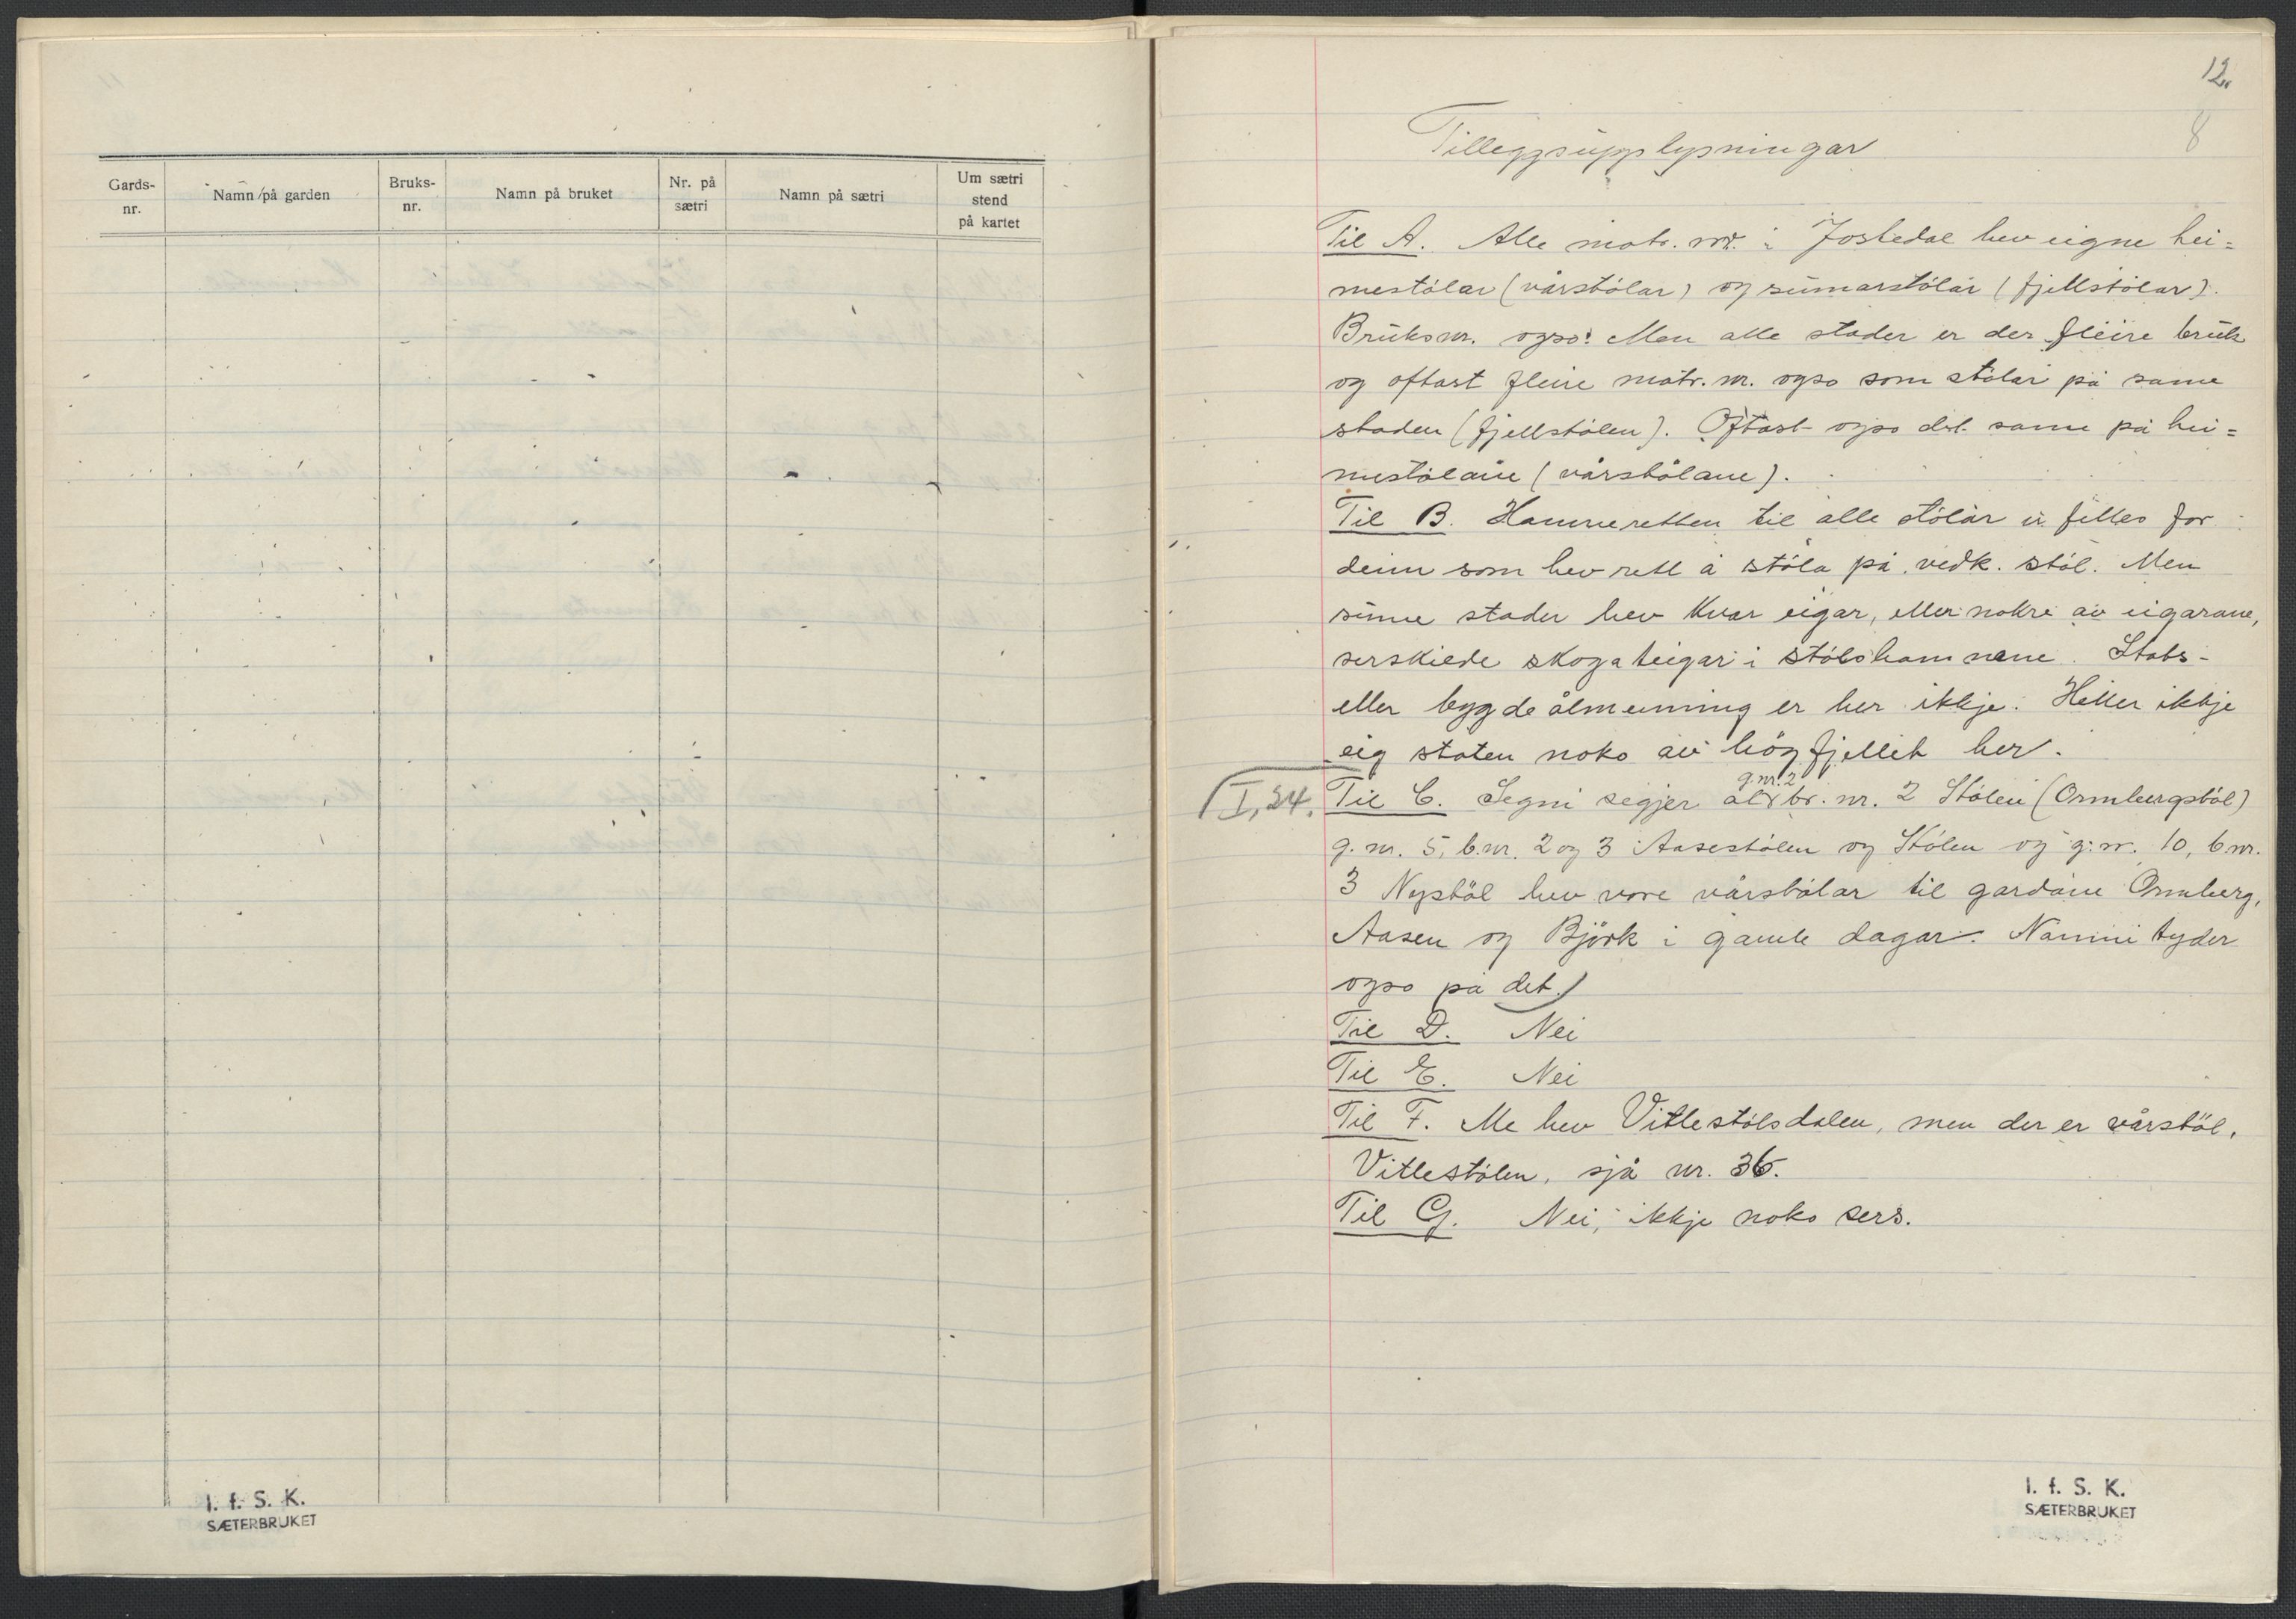 Gards-
nr.
Namn på garden
Bruks-
nr.
Namn på bruket
Nr. på
sætri
Namn på sætri
Um sætri
stend
på kartet
I. f. S. K.
SÆTERBRUKET
12.
8
Tilleggsupplysningar
Til A. Alle matr. nr. i Jostedal hev eigne hei=
mestölar (vårstölar) og sumarstölar (fjellstölar).
Bruksnr. ogso. Men alle stader er der fleire bruk
og oftast fleire matr. nr. ogso som stölar på same
staden (fjellstölen). Oftast ogso det same på hei=
mestölane (vårstölane).
Til B. Hamneretten til alle stölar er felles for
deim som hev rett å stöla på vedk. stöl. Men
sume stader hev kvar eigar, eller nokre av eigarane,
serskilde skogateigar i stölshamnene. Stats-
eller bygdeålmenning er her ikkje. Heller ikkje
eig staten noko av högfjellet her.
I, 24.
g.nr. 2
Til C. Segni segjer at br. nr. 2 Stölen (Ormbergstöl)
g. nr. 5, b.nr. 2 og 3 Aasestölen og Stölen og g. nr. 10, b.nr.
3 Nystöl hev vore vårstölar til gardane Ormberg,
Aasen og Björk i gamle dagar. Namni tyder
ogso på det.)
Til D. Nei
Til E. Nei
Til F. Me hev Vitlestölsdalen, men der er vårstöl,
Vitlestölen, sjå nr. 36.
Til G. Nei, ikkje noko sers.
I. f. S. K.
SÆTERBRUKET